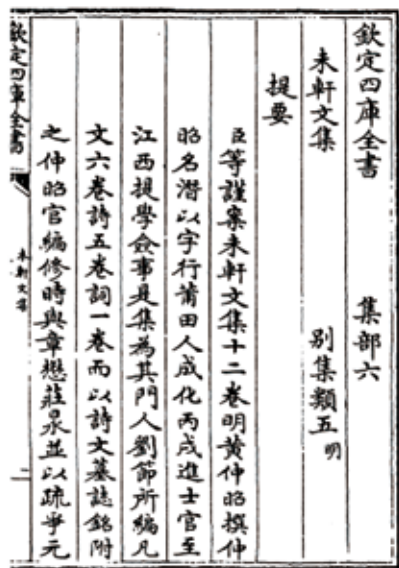 欽定四庫全書　集部六
未軒文集　別集類五明
提要
臣等謹案未軒文集十二卷明黃仲昭撰仲
昭名潛以字行莆田人成化丙戌進士官至
江西提學僉事是集為其門人劉節所編凡
文六卷詩五卷詞一卷而以詩文墓誌銘附
之仲昭官編修時與章懋莊㫤並以疏爭元
欽定四庫全書
未軒文集